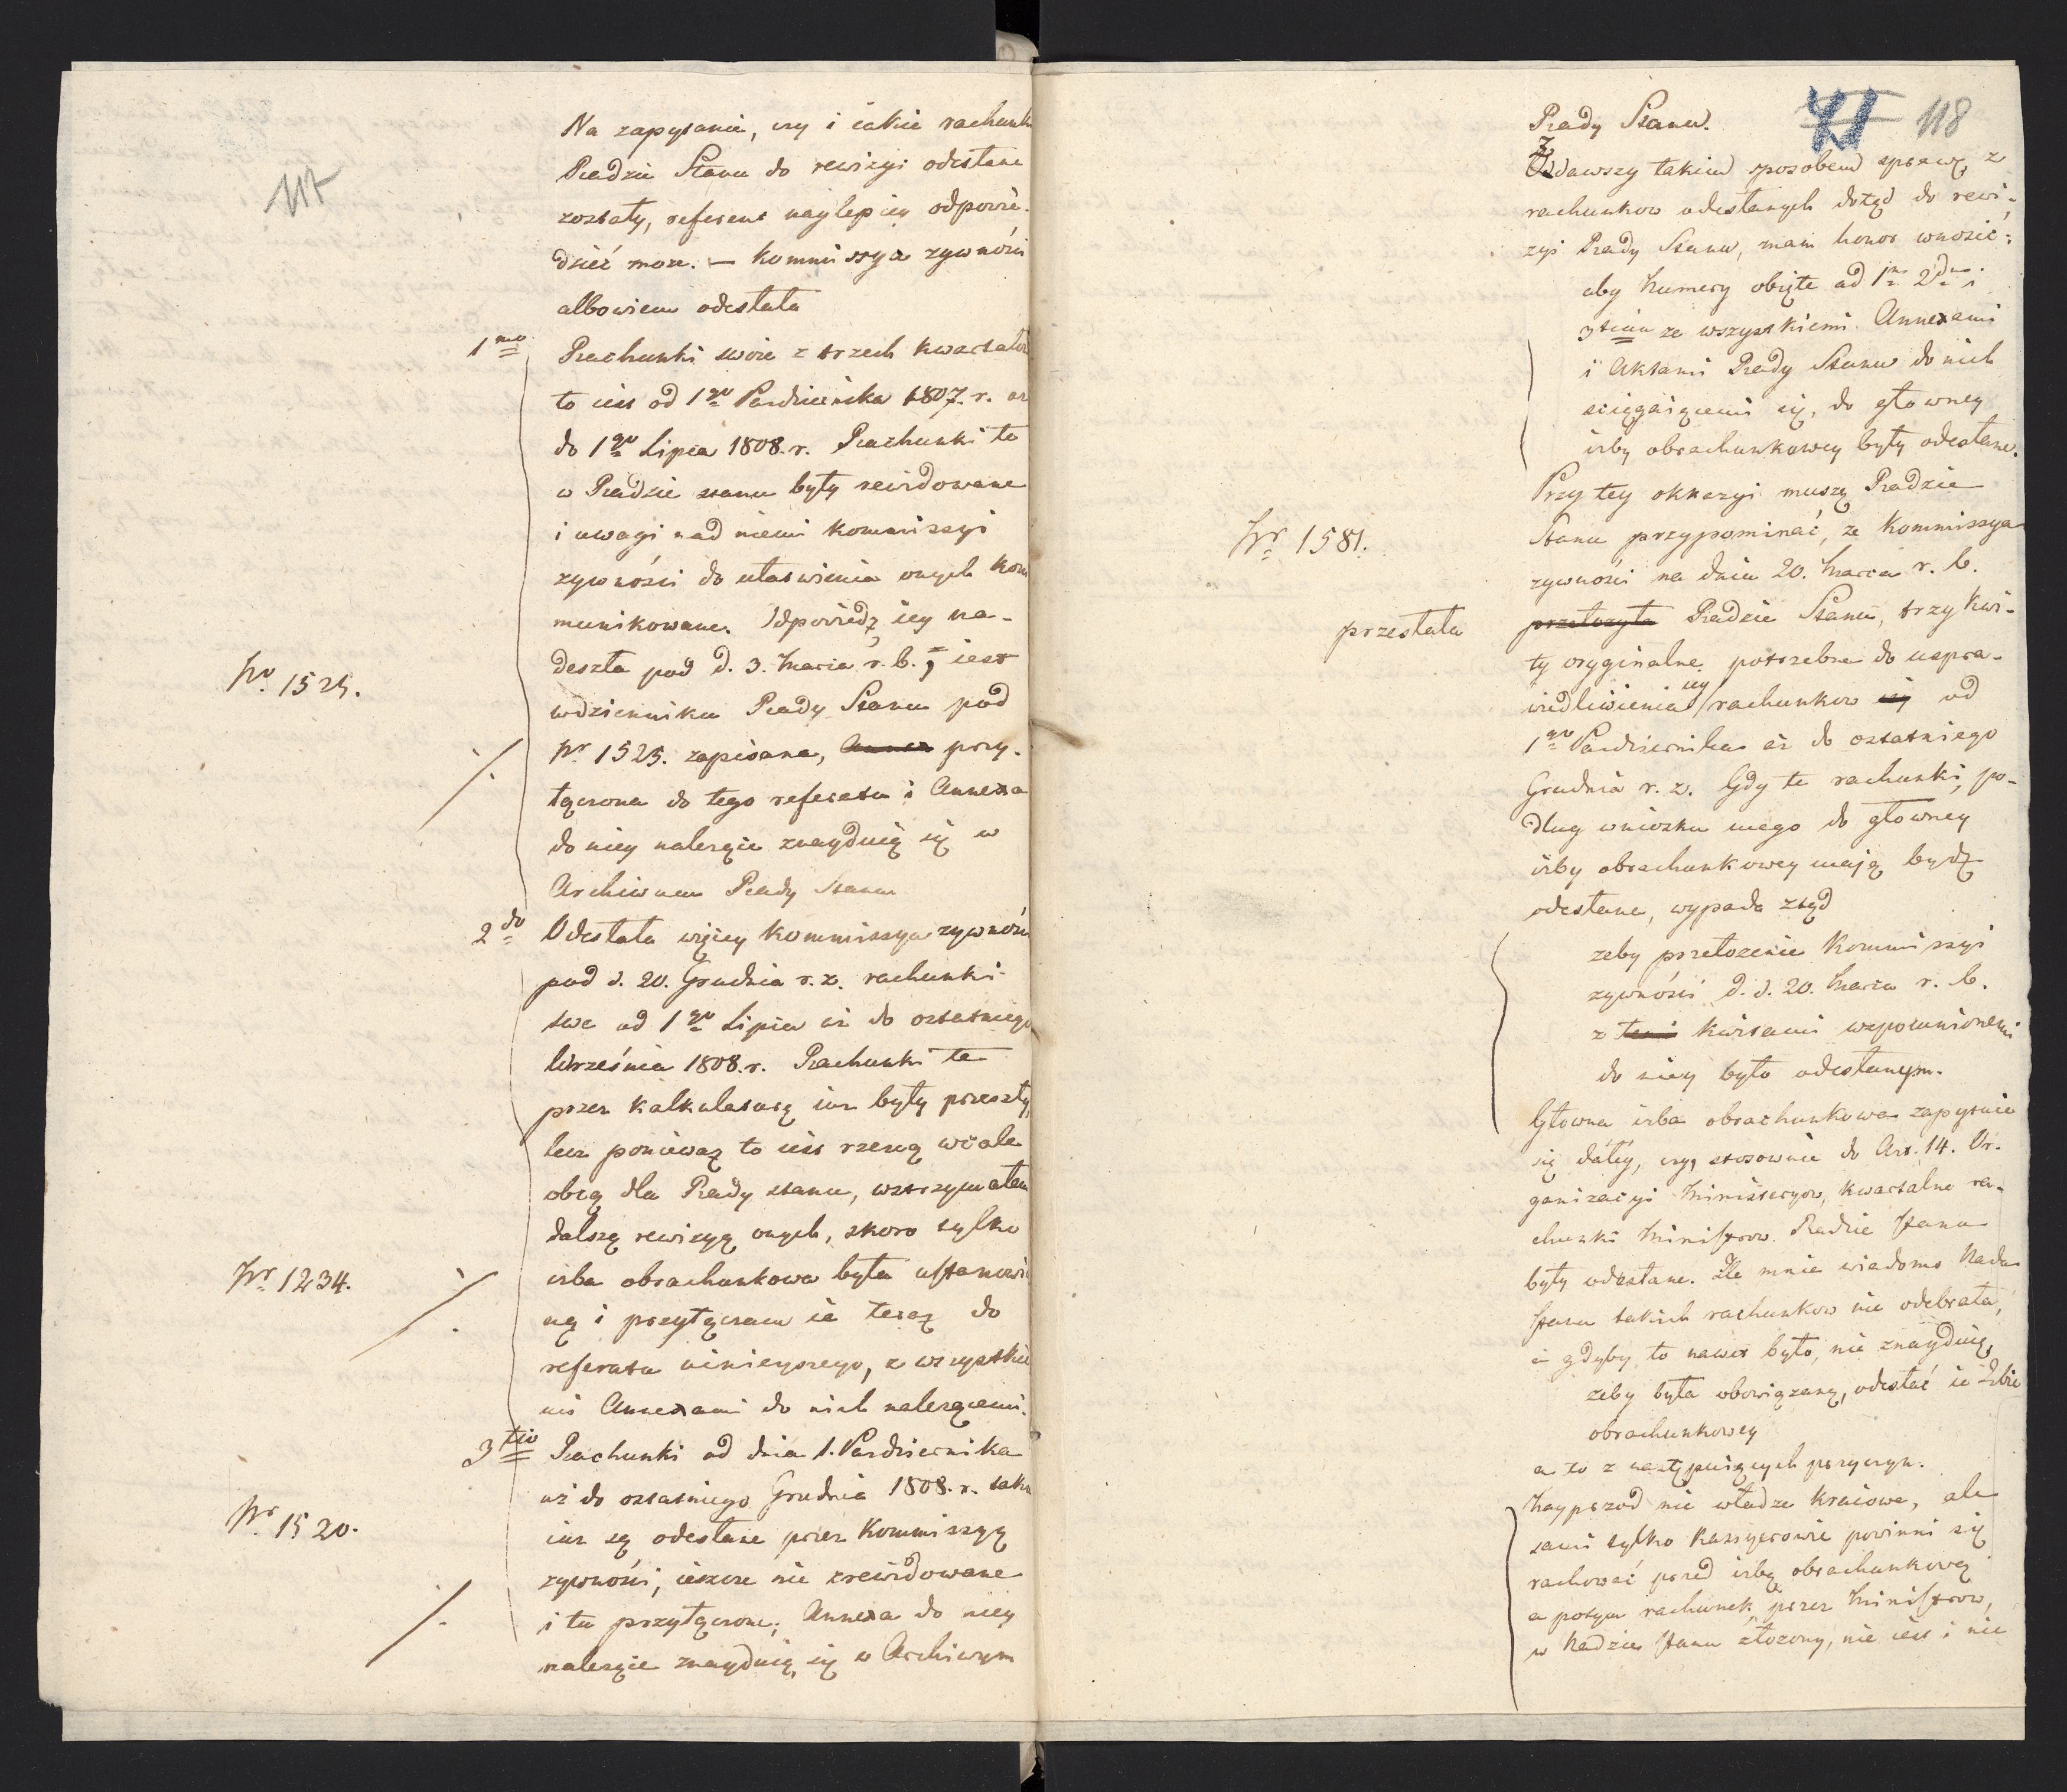 117
Na zapytanie, czy i iakie rachunk
Radzie Stanu do rewizyi odesłane
zostały, referent naylepiey odpowie-
dzieć moze. — Kommissya zywności
albowiem odesłała
1mo Rachunki swoie z trzech kwartałow
to iest od 1go Pazdziernika 1807. r. az
do 1go Lipca 1808. r. Rachunki te
w Radzie stanu były rewidowane
i uwagi nad niemi kommissyi
zywności do ułatwienia onych kom
munikowane. Odpowiedz iey na-
deszła pod d. 3. Marca r. b., iest
Nro 1525.
w dzienniku Rady Stanu pod
Nr 1525. zapisana, Annex przy-
łączona do tego referatu i Annexa
do niey nalezące znayduią się w
Archiwum Rady Stanu
2do Odesłała więcey Kommissya zywności
pod d. 20. Grudnia r. z. rachunki
swe od 1go Lipca az do ostatniego
Września 1808. r. Rachunki te
przez kalkulaturę iuz były przeszły,
lecz poniewaz to iest rzeczą wcale
obcą dla Rady stanu, wstrzymałem
dalszą rewizyą onych, skoro tylko
Nr 1234.
izba obrachunkowa była ustanowio
ną i przyłączam ie teraz do
referatu ninieyszego, z wszystkie
mi Annexami do nich nalezącemi.
3tio Rachunki od dnia 1. Pazdziernika
az do ostatniego Grudnia 1808. r. takze
Nr 1520.
iuz są odesłane przez Kommissyą
zywności, ieszcze nie zrewidowane
i tu przyłączone; Annexa do niey
nalezące znayduią się w Archiwym
118
Rady Stanu.
Zdawszy takim sposobem sprawę z
rachunkow odesłanych dotąd do rewi-
zyi Rady Stanu, mam honor wnosić:
aby Numery obięte ad 1mo 2do i
3tium ze wszystkiemi Annexami
i Aktami Rady Stanu do nich
ściągaiącemi się, do głowney
izby obrachunkowey były odesłane.
Przy tey okkazyi muszę Radzie
Nr 1581.
Stanu przypominać, ze Kommissya
zywności na dniu 20. Marca r. b.
przesłała
przełozyła Radzie Stanu, trzy kwi-
ty oryginalne potrzebne do uspra-
wiedliwienia iey rachunkow iey od
1go Pazdziernika az do ostatniego
Grudnia r. z. Gdy te rachunki, po-
dług wniosku mego do głowney
izby obrachunkowey maią bydz
odesłane, wypada ztąd
zeby przełozenie Kommissyi
zywności d. d. 20. Marca r. b.
z temi kwitami wspomnionemi
do niey było odesłanym.
Głowna izba obrachunkowa zapytuie
się daley, czy, stosownie do Art. 14. Or-
ganizacyi Ministeryow, kwartalne ra-
chunki Ministrow Radzie stanu
były odesłane. Ile mnie wiadomo Rada
stanu takich rachunkow nie odebrała,
a gdyby to nawet było, nie znayduię,
zeby była obowiązaną, odesłać ie Izbie
obrachunkowey
a to z następuiących przyczyn.
Nayprzod nie władze kraiowe, ale
sami tylko kassyerowie powinni się
rachować przed izbą obrachunkową
a potym rachunek przez Ministrow,
w Radzie stanu złozony, nie iest i nie